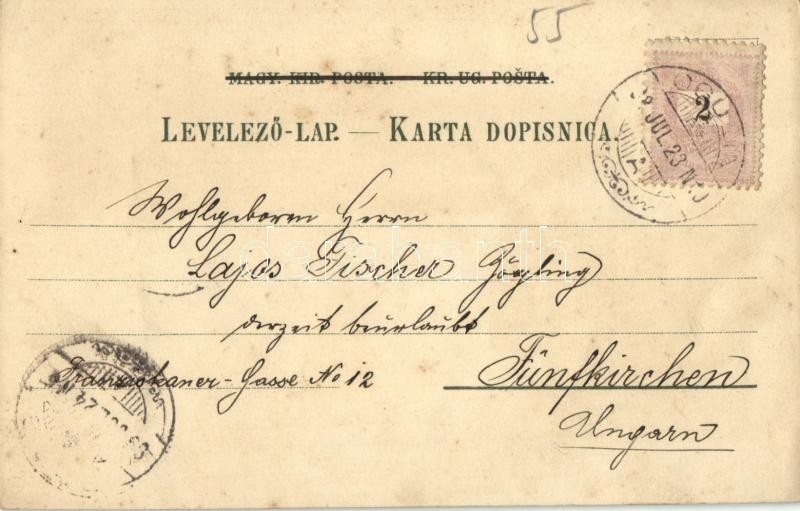 55
MAGY. KIR. POSTA. KR. UG. POŠTA.
LEVELEZŐ-LAP. — KARTA DOPISNICA.
2
JUL. 23
Wohlgeboren Herrn
Lajos Fischer Zögling
derzeit beurlaubt
Franziskaner-Gasse No 12
Fünfkirchen
Ungarn
darabanth